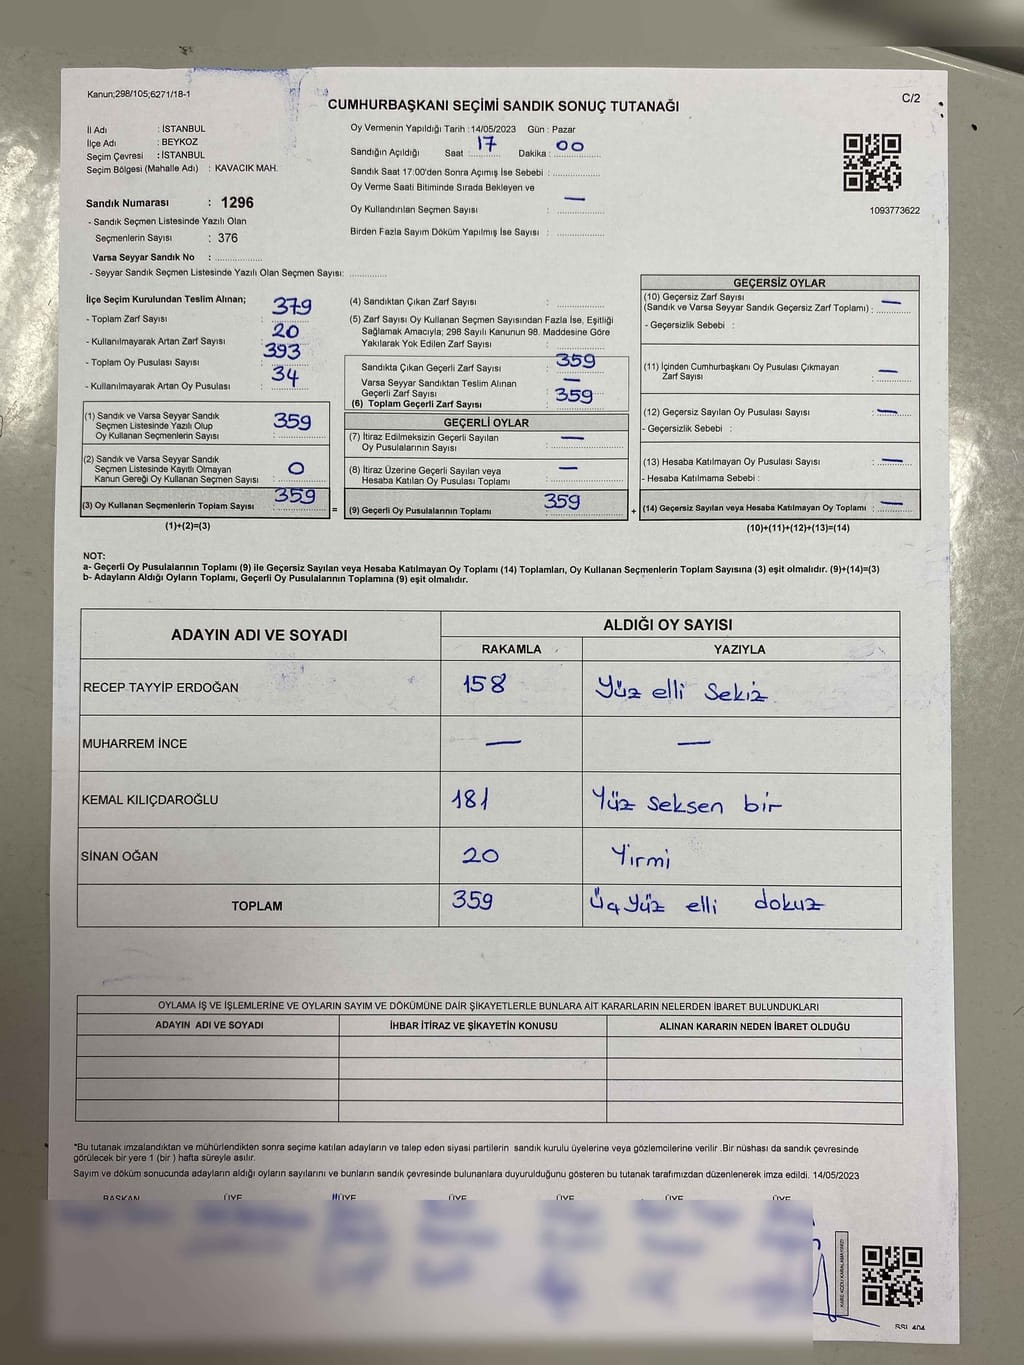 Kanun;298/105,6271/18-1
CUMHURBAŞKANI SEÇİMİ SANDIK SONUÇ TUTANAĞI
C/2
İl Adı : İSTANBUL
İlçe Adı : BEYKOZ
Seçim Çevresi : İSTANBUL
Seçim Bölgesi (Mahalle Adı) : KAVACIK MAH.
Sandık Numarası : 1296
- Sandık Seçmen Listesinde Yazılı Olan
Seçmenlerin Sayısı : 376
Varsa Seyyar Sandık No :
- Seyyar Sandık Seçmen Listesinde Yazılı Olan Seçmen Sayısı:
Oy Vermenin Yapıldığı Tarih : 14/05/2023 Gün : Pazar
Sandığın Açıldığı Saat : 17 Dakika : 00
Sandık Saat 17:00'den Sonra Açımış İse Sebebi :
Oy Verme Saati Bitiminde Sırada Bekleyen ve
Oy Kullandırılan Seçmen Sayısı : —
Birden Fazla Sayım Döküm Yapılmış İse Sayısı :
1093773622
İlçe Seçim Kurulundan Teslim Alınan;
- Toplam Zarf Sayısı : 379
- Kullanılmayarak Artan Zarf Sayısı : 20
- Toplam Oy Pusulası Sayısı : 393
- Kullanılmayarak Artan Oy Pusulası : 34
(1) Sandık ve Varsa Seyyar Sandık
Seçmen Listesinde Yazılı Olup
Oy Kullanan Seçmenlerin Sayısı : 359
(2) Sandık ve Varsa Seyyar Sandık
Seçmen Listesinde Kayıtlı Olmayan
Kanun Gereği Oy Kullanan Seçmen Sayısı : 0
(3) Oy Kullanan Seçmenlerin Toplam Sayısı : 359
(1)+(2)=(3)
(4) Sandıktan Çıkan Zarf Sayısı :
(5) Zarf Sayısı Oy Kullanan Seçmen Sayısından Fazla İse, Eşitliği
Sağlamak Amacıyla; 298 Sayılı Kanunun 98. Maddesine Göre
Yakılarak Yok Edilen Zarf Sayısı :
Sandıkta Çıkan Geçerli Zarf Sayısı : 359
Varsa Seyyar Sandıktan Teslim Alınan
Geçerli Zarf Sayısı : —
(6) Toplam Geçerli Zarf Sayısı : 359
GEÇERLİ OYLAR
(7) İtiraz Edilmeksizin Geçerli Sayılan
Oy Pusulalarının Sayısı : —
(8) İtiraz Üzerine Geçerli Sayılan veya
Hesaba Katılan Oy Pusulası Toplamı : —
= (9) Geçerli Oy Pusulalarının Toplamı : 359
GEÇERSİZ OYLAR
(10) Geçersiz Zarf Sayısı
(Sandık ve Varsa Seyyar Sandık Geçersiz Zarf Toplamı) : —
- Geçersizlik Sebebi :
(11) İçinden Cumhurbaşkanı Oy Pusulası Çıkmayan
Zarf Sayısı : —
(12) Geçersiz Sayılan Oy Pusulası Sayısı : —
- Geçersizlik Sebebi :
(13) Hesaba Katılmayan Oy Pusulası Sayısı : —
- Hesaba Katılmama Sebebi :
+ (14) Geçersiz Sayılan veya Hesaba Katılmayan Oy Toplamı : —
(10)+(11)+(12)+(13)=(14)
NOT:
a- Geçerli Oy Pusulalarının Toplamı (9) ile Geçersiz Sayılan veya Hesaba Katılmayan Oy Toplamı (14) Toplamları, Oy Kullanan Seçmenlerin Toplam Sayısına (3) eşit olmalıdır. (9)+(14)=(3)
b- Adayların Aldığı Oyların Toplamı, Geçerli Oy Pusulalarının Toplamına (9) eşit olmalıdır.
ADAYIN ADI VE SOYADI ALDIĞI OY SAYISI
RAKAMLA YAZIYLA
RECEP TAYYİP ERDOĞAN 158 Yüz elli Sekiz
MUHARREM İNCE — —
KEMAL KILIÇDAROĞLU 181 Yüz seksen bir
SİNAN OĞAN 20 Yirmi
TOPLAM 359 Üçyüz elli dokuz
OYLAMA İŞ VE İŞLEMLERİNE VE OYLARIN SAYIM VE DÖKÜMÜNE DAİR ŞİKAYETLERLE BUNLARA AİT KARARLARIN NELERDEN İBARET BULUNDUKLARI
ADAYIN ADI VE SOYADI İHBAR İTİRAZ VE ŞİKAYETİN KONUSU ALINAN KARARIN NEDEN İBARET OLDUĞU
*Bu tutanak imzalandıktan ve mühürlendikten sonra seçime katılan adayların ve talep eden siyasi partilerin sandık kurulu üyelerine veya gözlemcilerine verilir .Bir nüshası da sandık çevresinde
görülecek bir yere 1 (bir ) hafta süreyle asılır.
Sayım ve döküm sonucunda adayların aldığı oyların sayılarını ve bunların sandık çevresinde bulunanlara duyurulduğunu gösteren bu tutanak tarafımızdan düzenlenerek imza edildi. 14/05/2023
BAŞKAN ÜYE ÜYE ÜYE ÜYE ÜYE ÜYE
KARE KODU KARALAMAYINIZ!